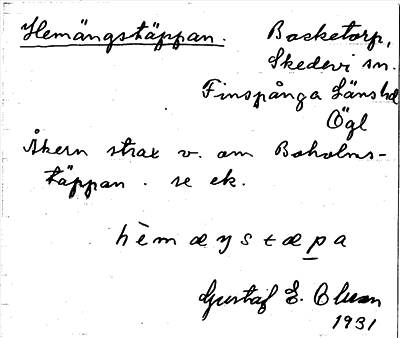 Hemängstäppan. Basketorp,
Skedevi sn.
Finspånga Länshd
Ögl
Åkern strax v. om Boholms-
täppan. se ek.
hèmæŋstæpa
Gustaf E. Olsson
1931